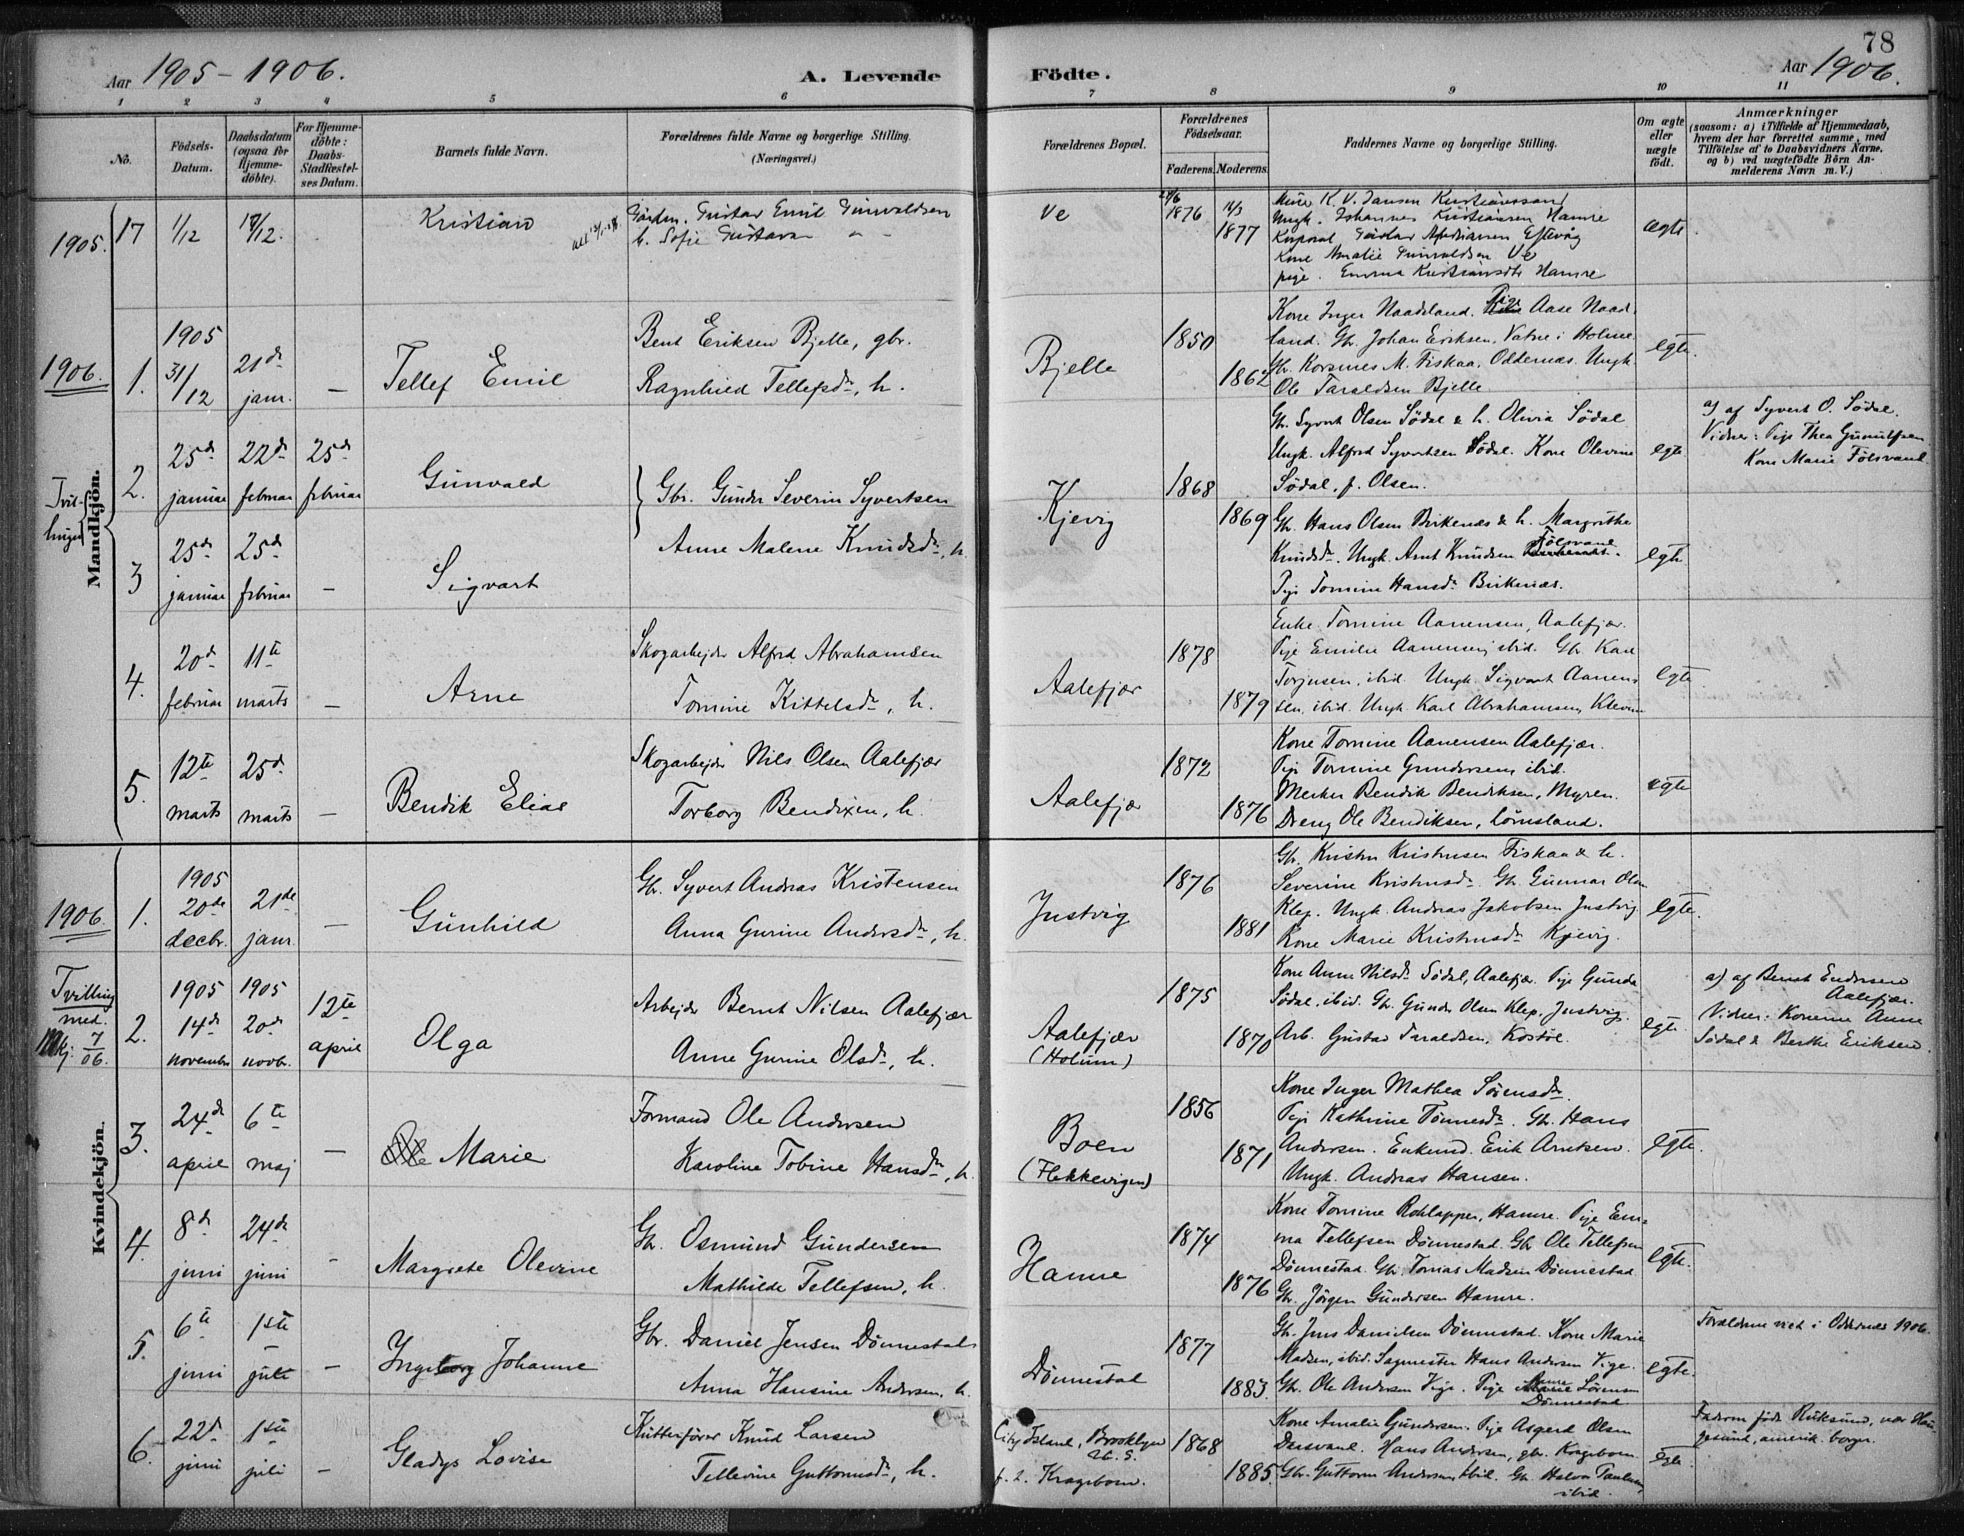 78
Aar 1905 - 1906.
A. Levende Födte.
Aar 1906.
1 2 3 4 5 6 7 8 9 10 11
No.
Födsels-Datum.
Daabsdatum (ogsaa for Hjemme-döbte).
For Hjemme-döbte: Daabs-Stadfæstel-ses Datum.
Barnets fulde Navn.
Forældrenes fulde Navne og borgerlige Stilling. (Næringsvei.)
Forældrenes Bopæl.
Forældrenes Födselsaar.
Faderens. Moderens.
Faddernes Navne og borgerlige Stilling.
Om ægte eller uægte födt.
Anmærkninger
(saasom: a) i Tilfælde af Hjemmedaab, hvem der har forrettet samme, med Tilföielse af to Daabsvidners Navne, og b) ved uægtefödte Börn An-melderens Navn m. V.)
1905. 17 1/12 17/12.
Kristian
Gustav Emil Gunvaldsen
h. Sofie Gustava
Ve
1876
1877
K. V. Jansen Kristianssand
Ungk. Johannes Kristiansen Hamre
Korporal Gustav
Kone Amalie Gunvaldsen Ve
pige. Emma Kristiansdtr Hamre
ægte
Mandkjön.
1906. 1. 1905 31/12 21de janr. –
Tellef Emil
Bent Eriksen Bjelle, gbr.
Ragnhild Tellefsdr, h.
Bjelle
1850
1862
Kone Inger Naadeland. Pige Aase Naad-
land. Gb. Johan Eriksen, Vatne i Holme
Gb. Korsmes M. Fiskaa, Oddernæs. Ungk.
Ole Taraldsen Bjelle
egte.
Tvil-
linger
2. 25de januar 22de februar 25de februar
Gunvald
Gbr. Gunder Severin Syvertsen
Anne Malene Knudsdr, h.
Kjevig
1868
1869
Gb. Syvert Olsen Södal & h. Olivia Södal
Ungk. Alfred Syvertsen Södal. Kone Olevine
Södal, f. Olsen.
egte
a) af Syvert O. Södal.
Vidner: Pige Thea Gunulfsen
Kone Marie Fölsvand
3 25de januar 25de februar –
Sigvart
Gb. Hans Olsen Birkenæs & h. Margrethe
Knudsdr. Ungk. Arnt Knudsen Fölsvand.
Pige Tomine Hansdr Birkenæs.
egte
4. 20de februar 11te marts –
Arne
Skogarbejder Alfred Abrahamsen
Tomine Kittelsdr, h.
Aalefjær
1878
1879
Enke Tomine Aanensen, Aalefjær.
Pige Emilie Aanensen, ibid. Gb. Karl
Torjusen, ibid. Ungk. Sigvart Aanen-
sen, ibid. Ungk. Karl Abrahamsen, Kleven
egte
5. 12te marts 25de marts –
Bendik Elias
Skogarbejder Nils Olsen Aalefjær
Torborg Bendixen, h.
Aalefjær
1872
1876
Kone Tomine Aanensen Aalefjær.
Pige Tomine Gundersen, ibid.
Bendik Bendiksen, Myren.
Dreng Ole Bendiksen, Lömsland.
egte
Kvindekjön.
1906 1. 1905 20de decbr. 21de janr. –
Gunhild
Gb. Syvert Andreas Kristensen
Anna Gurine Andersdr, h.
Justvig
1876
1881
Gb. Kristen Kristensen Fiskaa & h.
Severine Kristensdr Gb. Gunnar Olsen
Klep. Ungk. Andreas Jakobsen Justvig
Kone Marie Kristensdr Kjevig.
egte.
Tvilling
med.
Mkj. 7/06.
2. 1905 14de november 1905 20de novbr. 12te april
Olga
Arbejder Bernt Nilsen Aalefjær
Anne Gurine Olsdr, h.
Aalefjær
(Holum)
1875
1870
Kone Anne Nilsdr Södal, Aalefjær. Pige Gunda
Södal, ibid. Gb. Gunder Olsen Klep, Justvig.
Arb. Gustav Taraldsen, Kostöl.
egte.
a) af Bernt Endresen
Aalefjær.
Vidner: Konerne Anne
Södal & Berthe Eriksen.
3. 24de april 6te maj –
Marie
Formand Ole Andersen
Karoline Tobine Hansdr, h.
Boen
(Flekkevigen)
1856
1871
Kone Inger Mathea Sörensdr.
Pige Kathrine Tönnesdr. Gb. Hans
Andersen. Enkemd. Erik Arntsen.
Ungk. Andreas Hansen.
egte.
4. 8de juni 24de juni –
Margrete Olevine
Gb. Osmund Gundersen
Mathilde Tellefsen, h.
Hamre
1874
1876
Kone Tomine Roklapper, Hamre. Pige Em-
ma Tellefsen Dönnestad. Gbr Ole Tellefsen
Dönnestad. Gb. Tomas Madsen Dönnestad
Gb. Jörgen Gundersen Hamre.
egte.
5. 6te juni 1ste juli –
Ingeborg Johanne
Gbr. Daniel Jensen Dönnestad
Anna Hansine Andersen, h.
Dönnestad
1877
1883.
Gb. Jens Danielsen Dönnestad. Kone Marie
Madsen, ibid. Sagmester Hans Andersen Vige.
Gb. Ole Andersen Vige. Pige Sörensen
Dönnestad
egte.
Forældrene viet i Oddernes 1906.
6. 22de juni 1ste juli –
Gladys Lovise
Kutterförer Knud Larsen
Tellevine Guttormsdr, h.
City Island, Brooklyn
U. S.
f. t. Kragebom.
1868
1885
Kone Amalie Gundersen. Pige Asgerd Olsen
Hans Andersen, gbr. Kragebom
Gb. Guttorm Andersen, ibid. Gb. Halvor Paulsen,
ibid.
egte
Faderen föd Röksund, nær Hau-
gesund, amerik. borger.